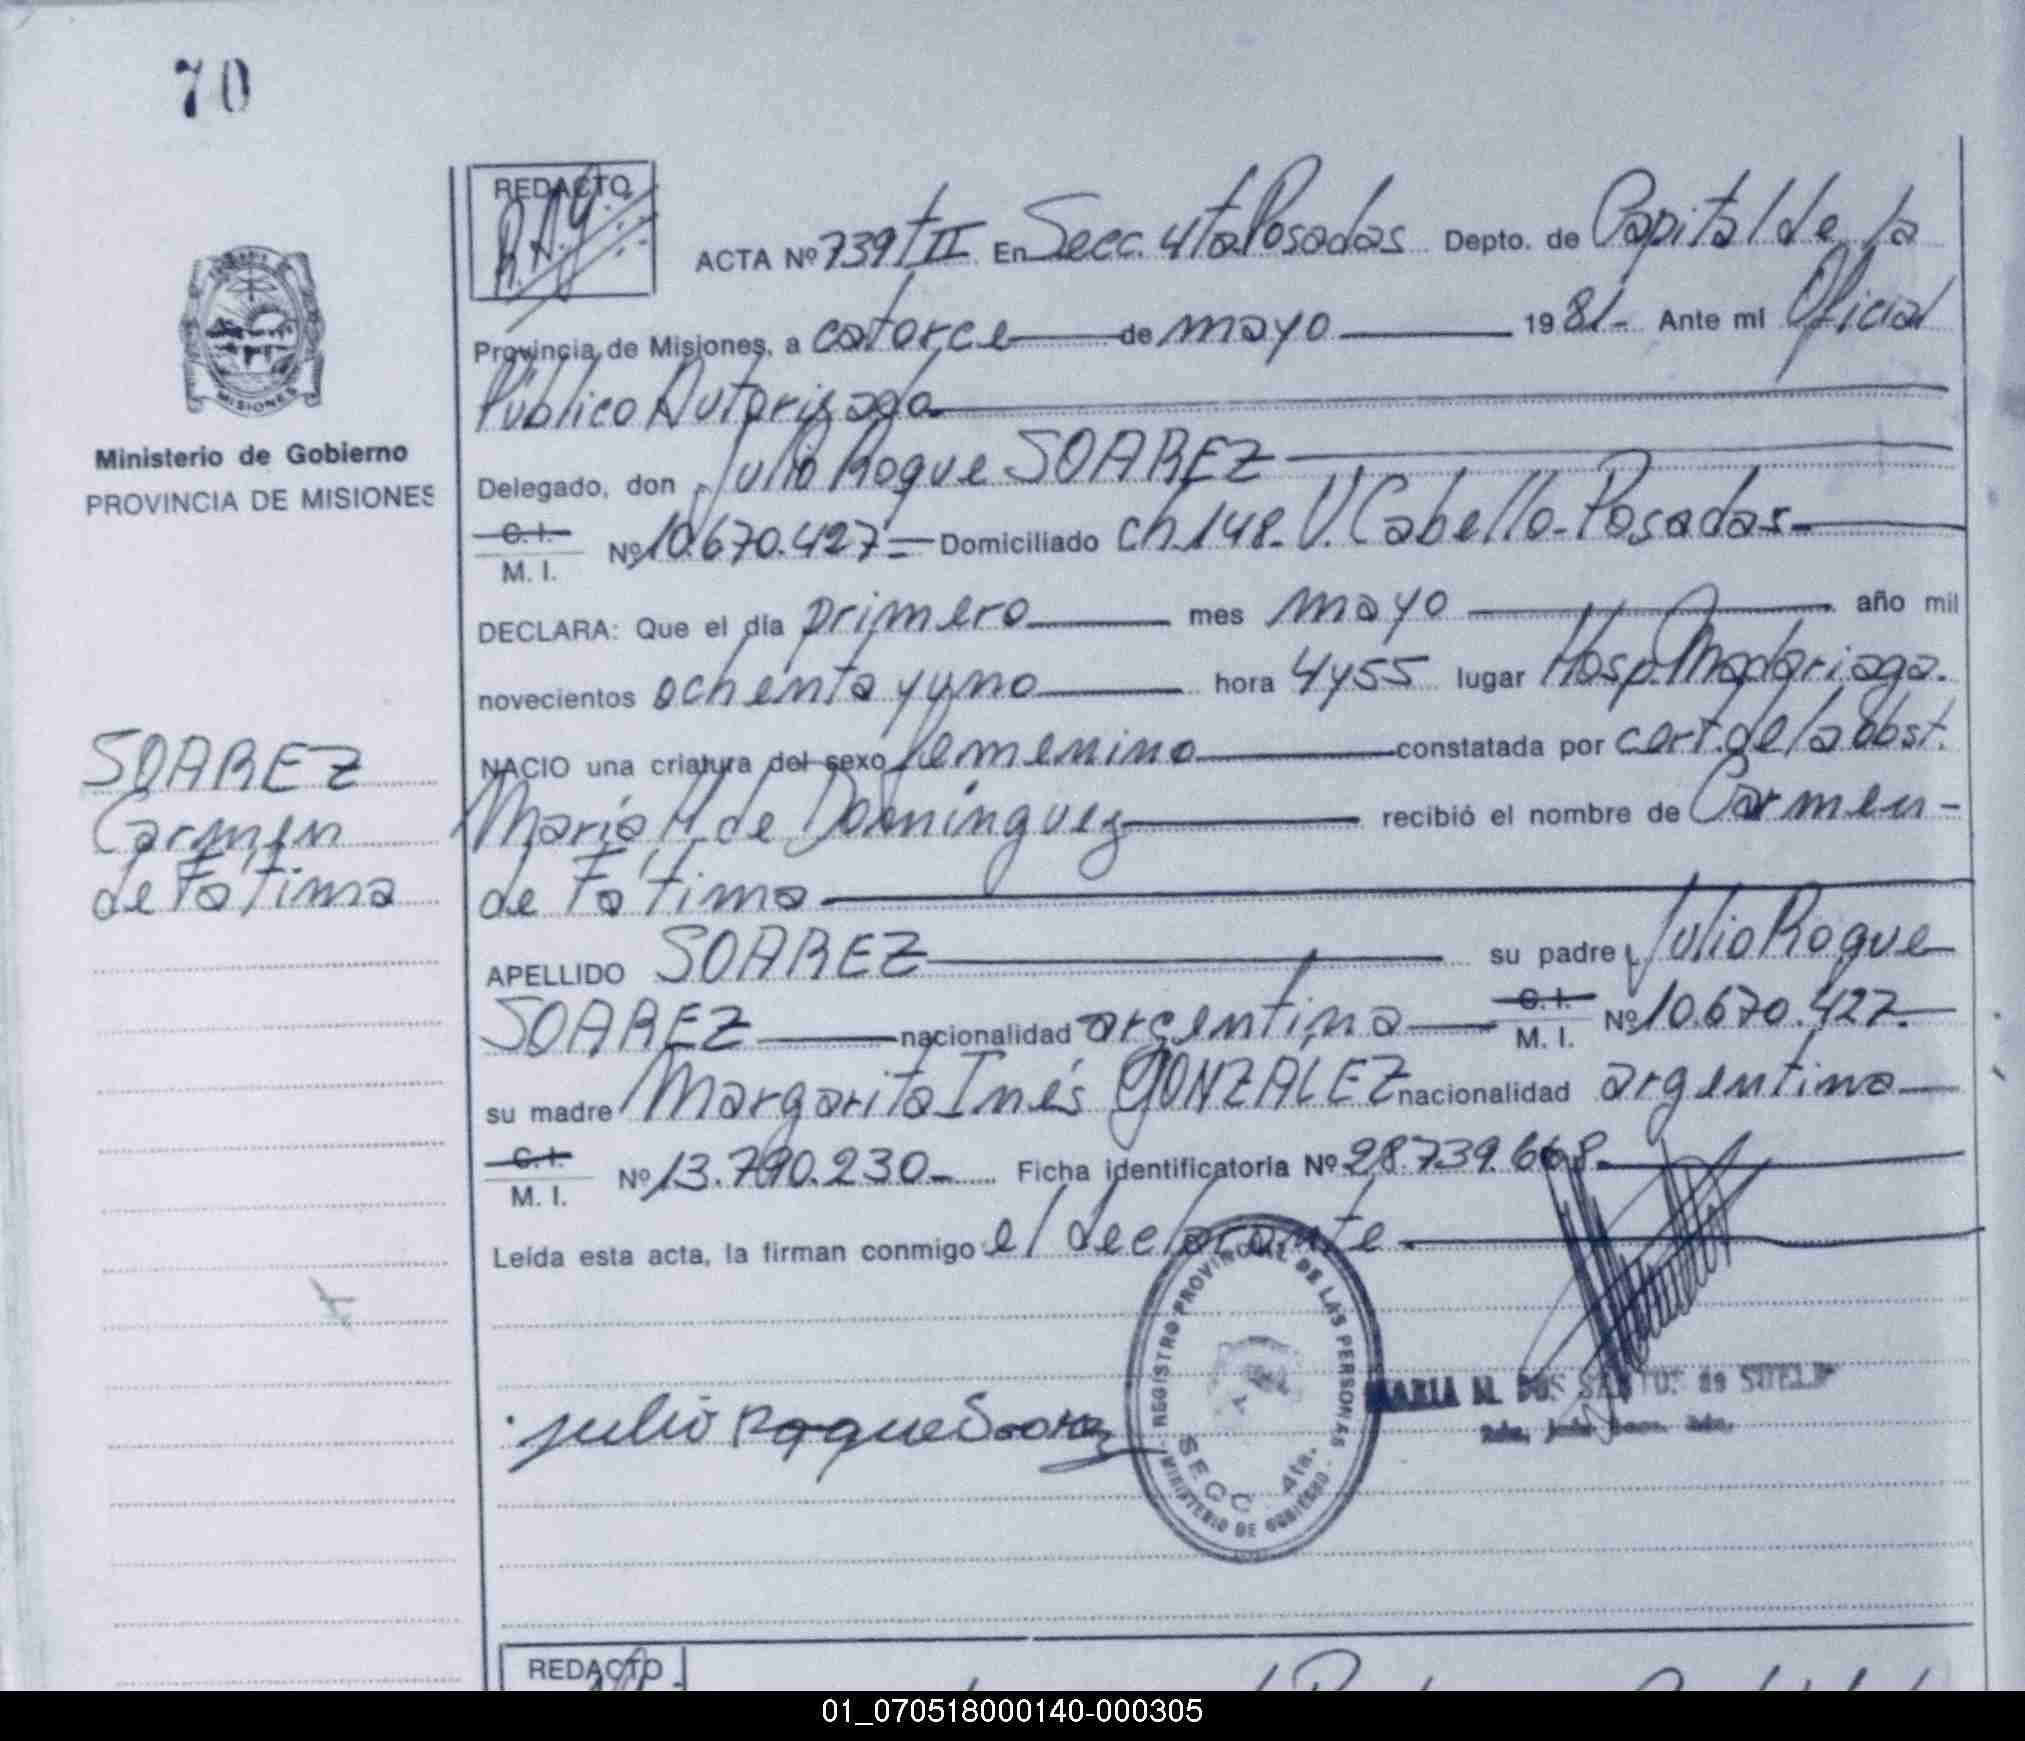 70
REDACTO
R.A.G.
ACTA Nº 739 t II En Secc. 4ta Posadas Depto. de Capital de la
Provincia de Misiones, a catorce de mayo 1981- Ante mí Oficial
Público Autorizado
Delegado, don Julio Roque SOAREZ
C. I.
M. I. Nº 10.670.427 = Domiciliado ch. 148- V. Cabello-Posadas-
DECLARA: Que el día primero mes mayo año mil
novecientos ochenta y uno hora 4 y 55 lugar Hosp. Madariaga.
NACIO una criatura del sexo femenino constatada por cert. de la Obst.
María H. de Domínguez recibió el nombre de Carmen-
de Fátima
APELLIDO SOAREZ su padre Julio Roque
SOAREZ nacionalidad argentina C. I. M. I. Nº 10.670.427.
su madre Margarita Inés GONZALEZ nacionalidad argentina
C. I.
M. I. Nº 13.790.230- Ficha identificatoria Nº 28.739.668.
Leída esta acta, la firman conmigo el declarante.
Julio Roque Soarez
REGISTRO PROVINCIAL DE LAS PERSONAS
SECC. 4ta.
MINISTERIO DE GOBIERNO
MARIA M. DOS SANTOS de
MISIONES
Ministerio de Gobierno
PROVINCIA DE MISIONES
SOAREZ
Carmen
de Fátima
REDACTO
01_070518000140-000305